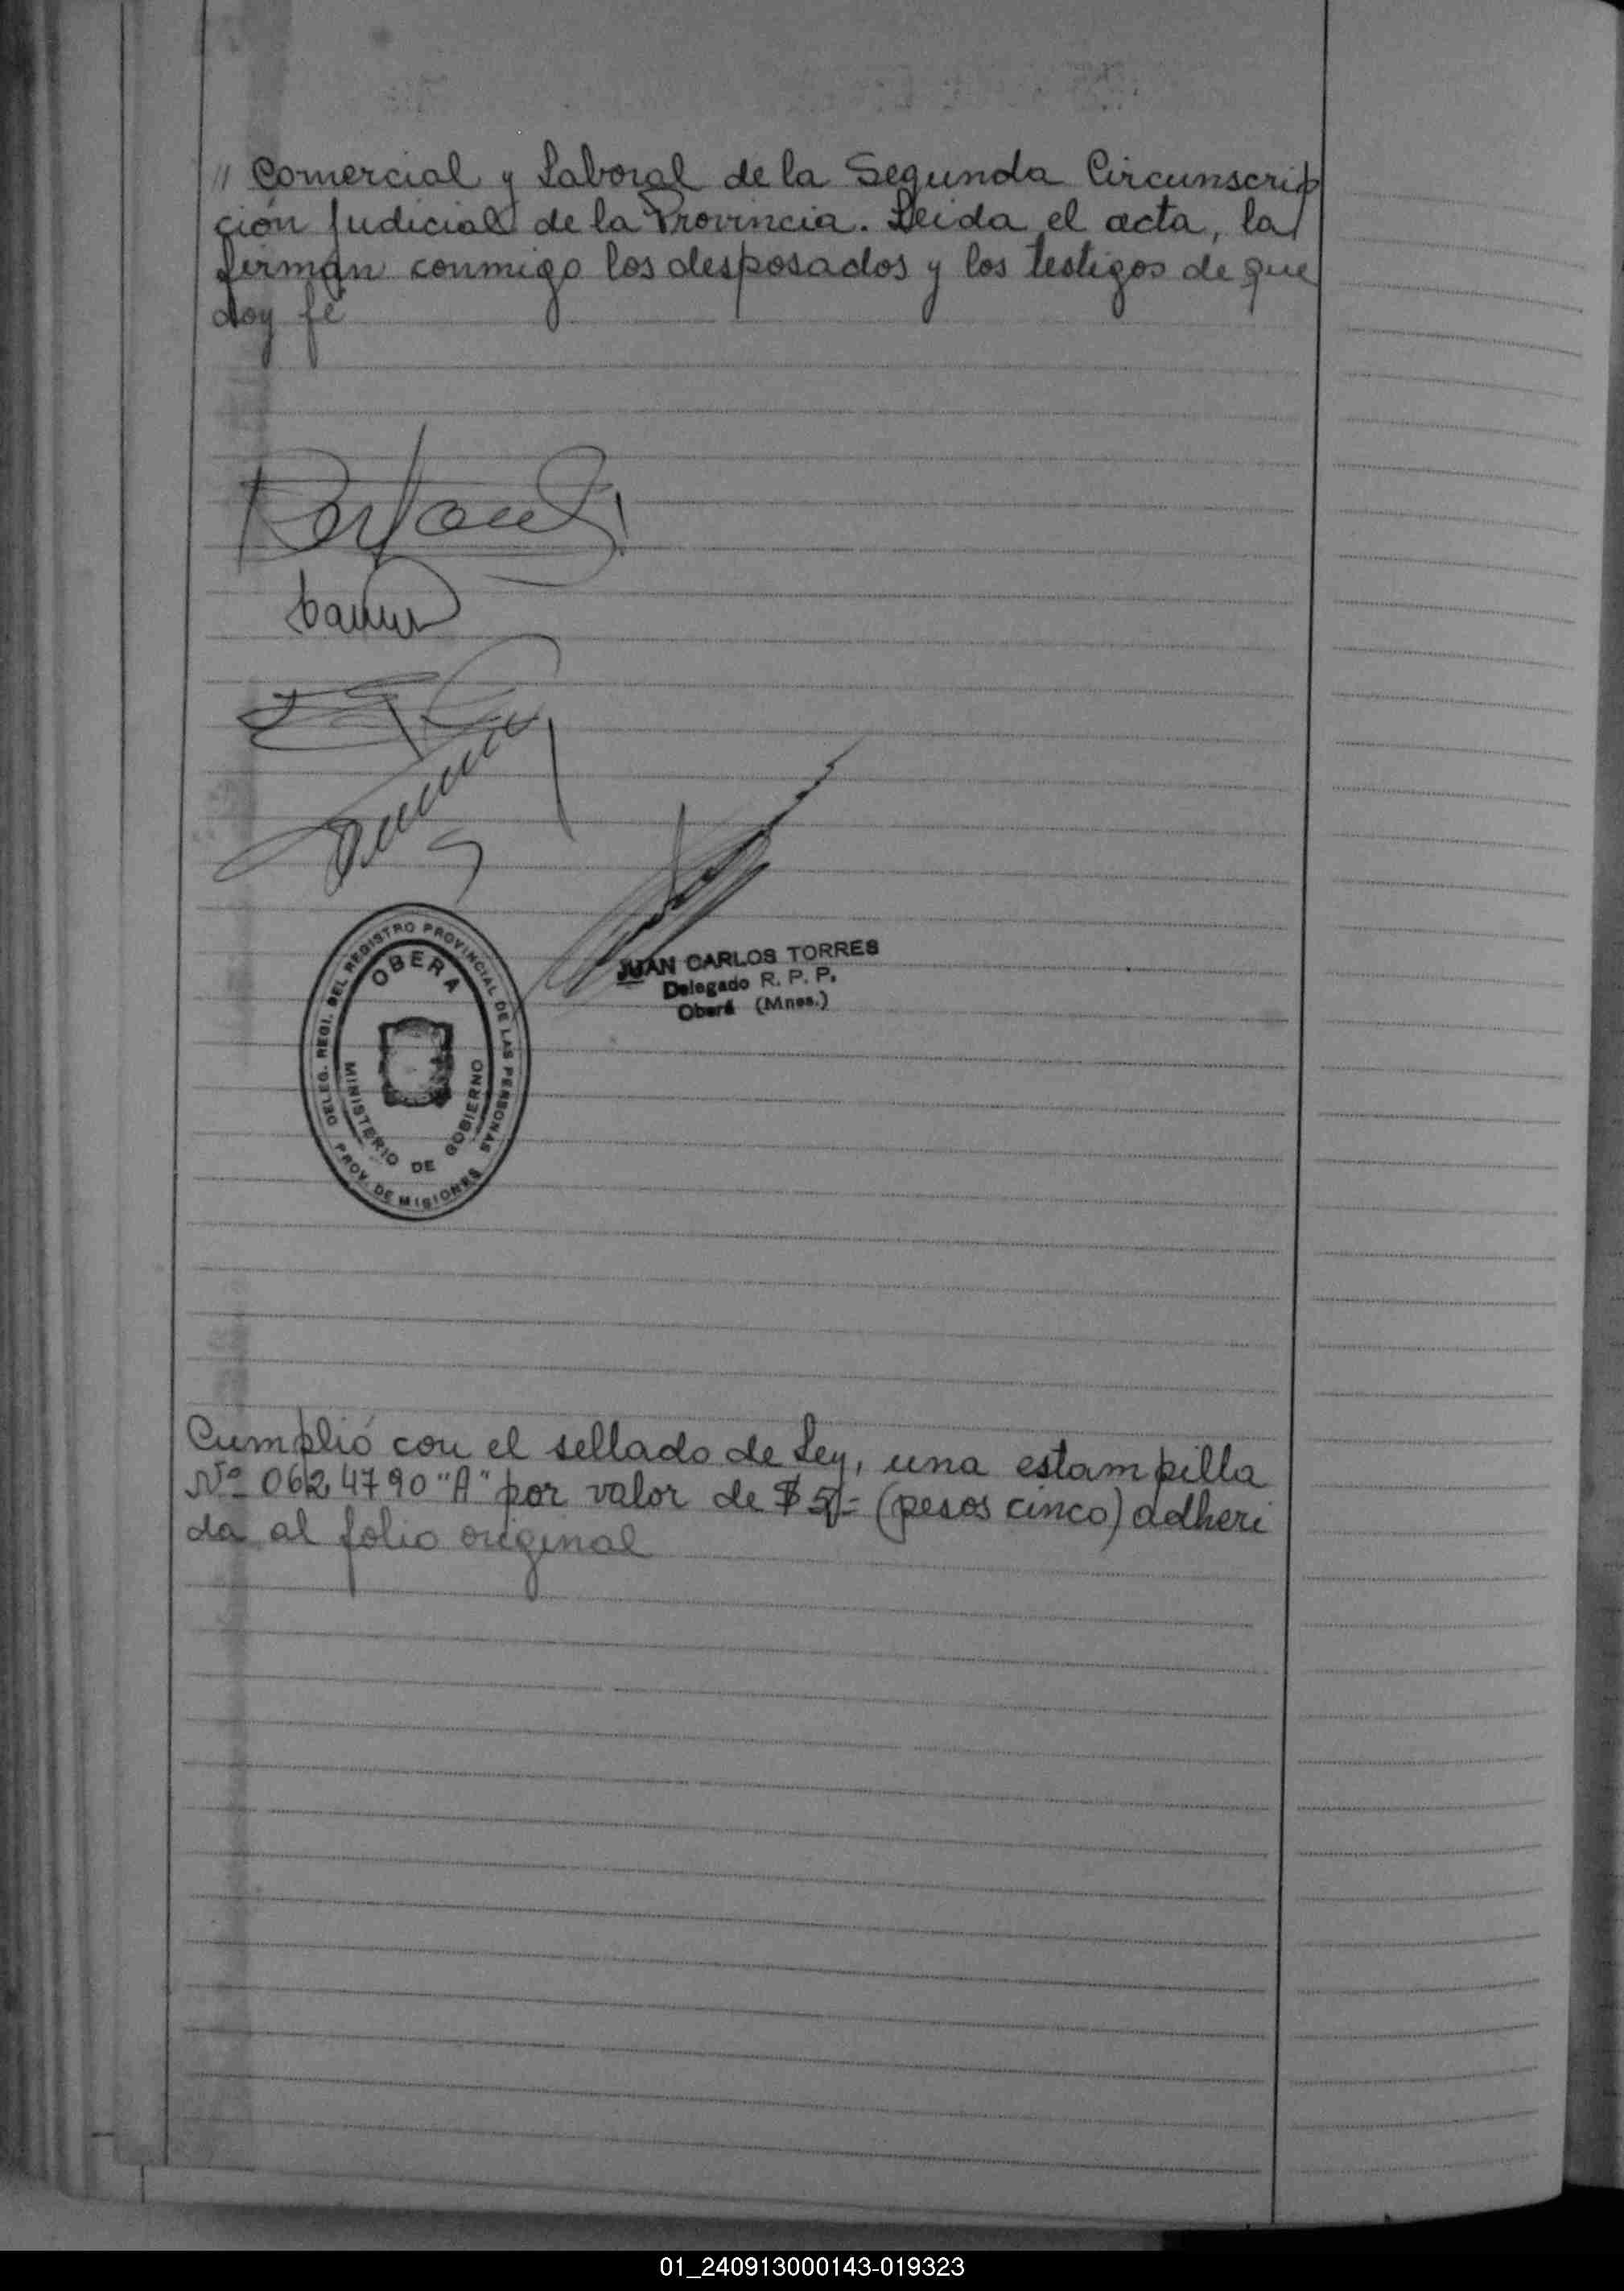 // Comercial y Laboral de la Segunda Circunscrip
ción Judicial de la Provincia. Leida el acta, la
firman conmigo los desposados y los testigos de que
doy fé
JUAN CARLOS TORRES
Delegado R. P. P.
Oberá (Mnes.)
DELEG. REGI. DEL REGISTRO PROVINCIAL DE LAS PERSONAS
OBERA
MINISTERIO DE GOBIERNO
PROV. DE MISIONES
Cumplió con el sellado de Ley, una estampilla
Nº 0624790 "A" por valor de $ 5,- (pesos cinco) adheri
da al folio original
01_240913000143-019323